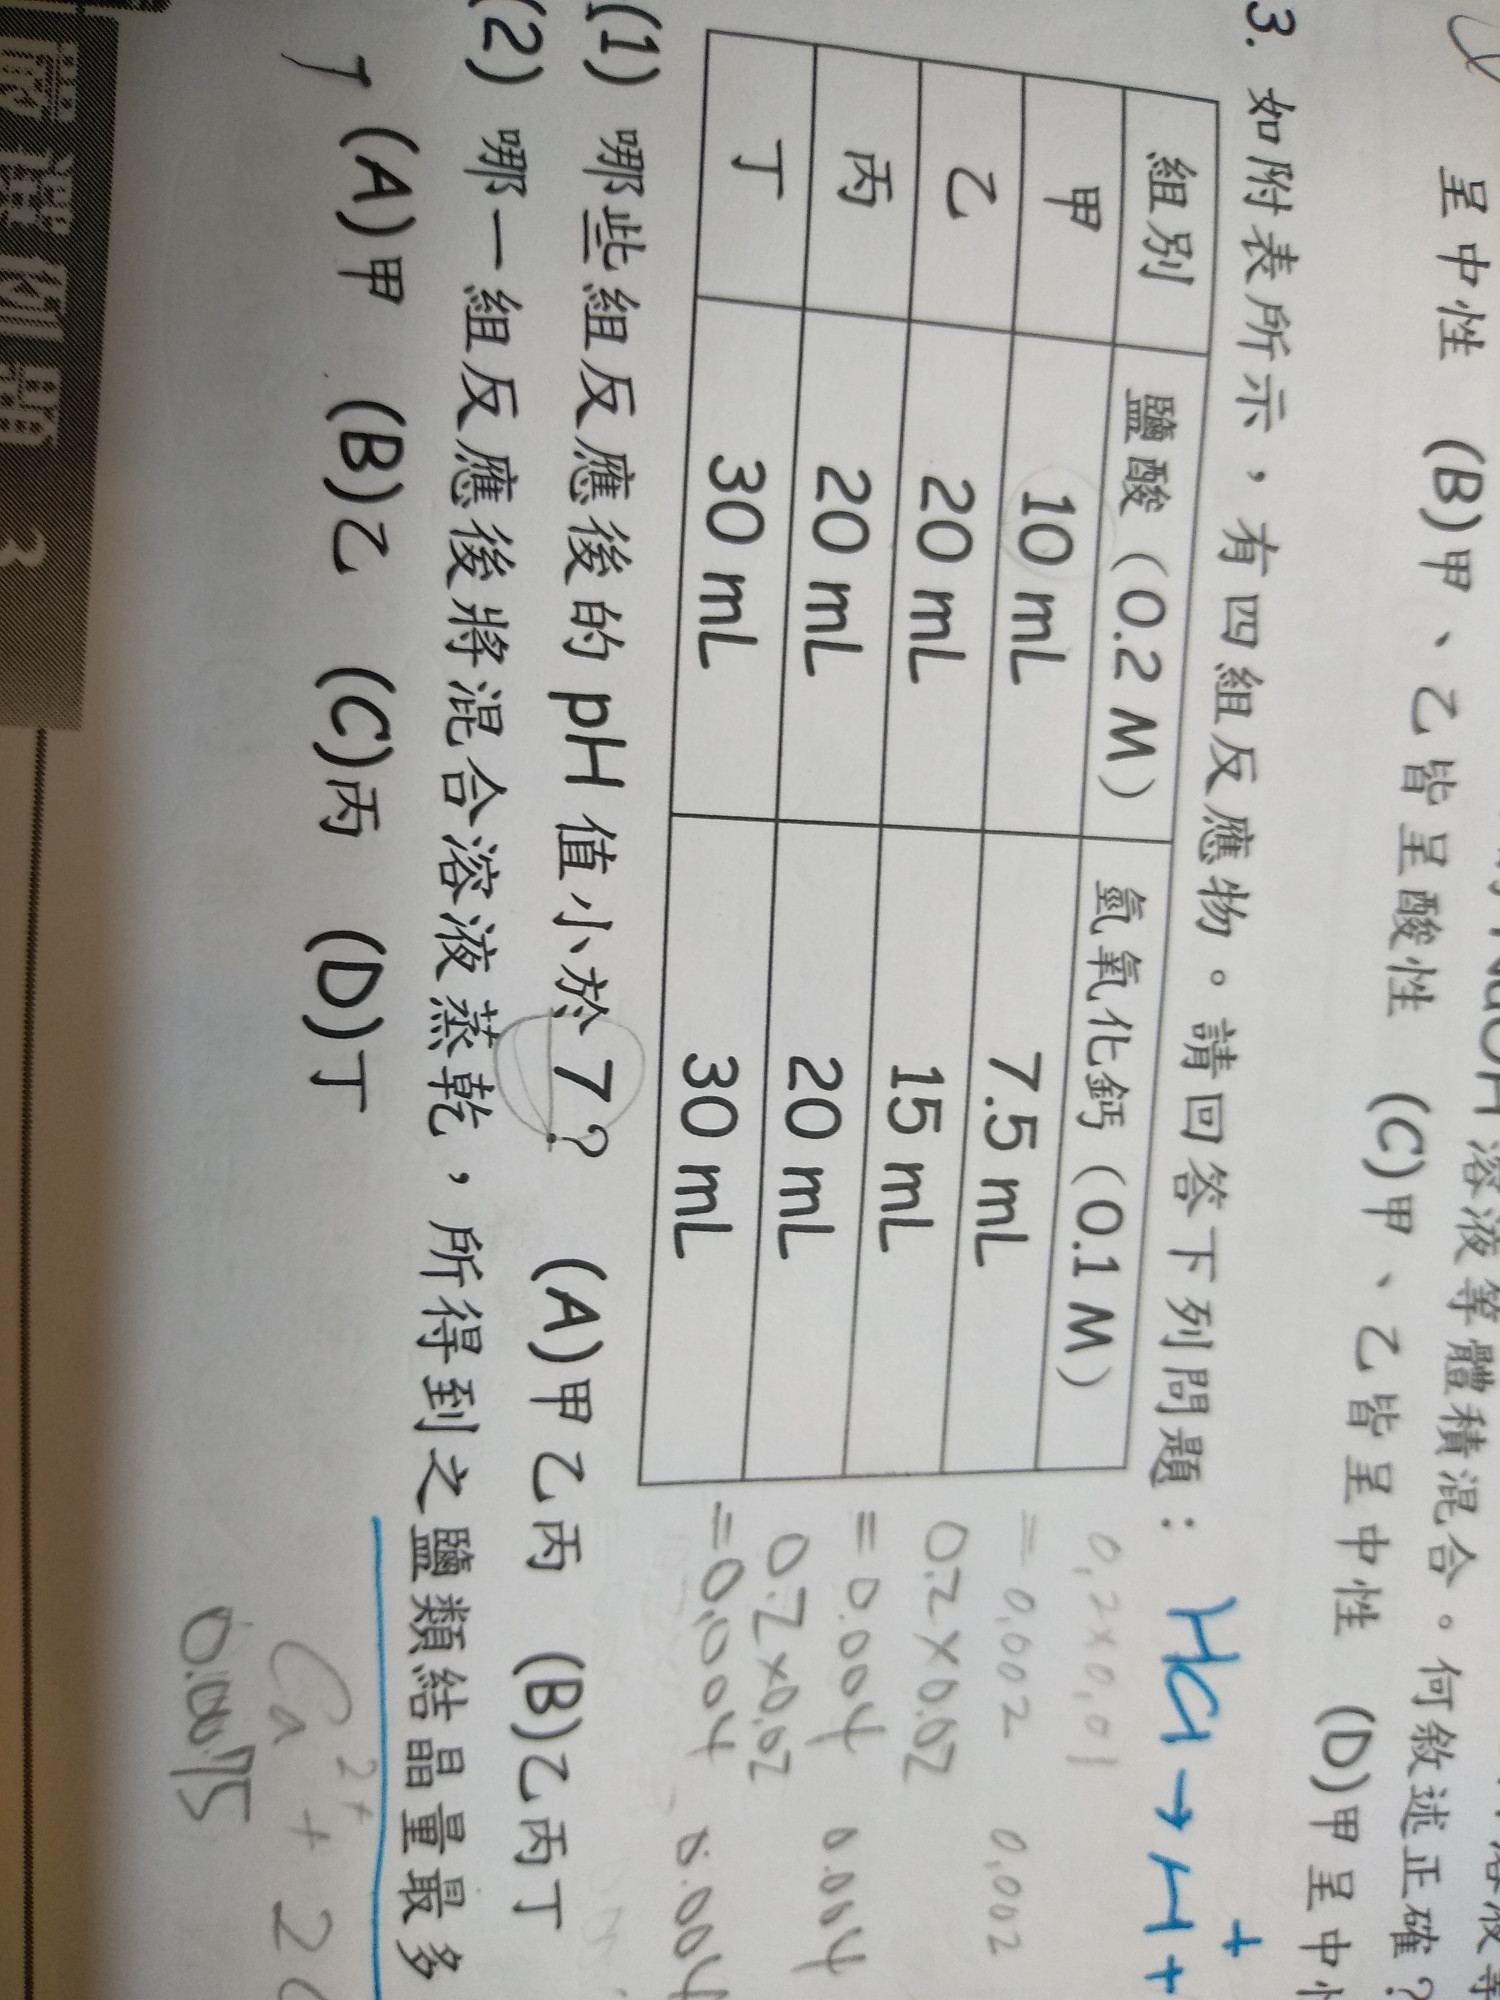 呈中性 (B)甲、乙皆呈酸性 (C)甲、乙皆呈中性 (D)甲呈中
3. 如附表所示，有四組反應物。請回答下列問題： HCl→H+ +
組別 鹽酸（0.2 M） 氫氧化鈣（0.1 M）
甲 10 mL 7.5 mL
乙 20 mL 15 mL
丙 20 mL 20 mL
丁 30 mL 30 mL
0.2×0.01
=0.002 0.002
0.2×0.02
=0.004 0.004
0.2×0.02
=0.004 0.004
(1) 哪些組反應後的 pH 值小於 7？ (A)甲乙丙 (B)乙丙丁
(2) 哪一組反應後將混合溶液蒸乾，所得到之鹽類結晶量最多
(A)甲 (B)乙 (C)丙 (D)丁
Ca2+ + 2
0.00075
3